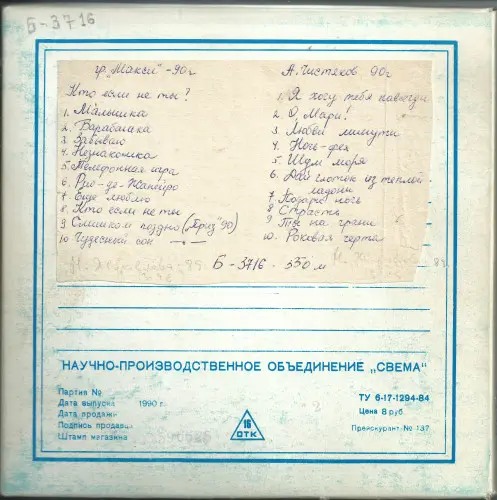 Б-3716
гр. "Макси" -90г
Кто если не ты?
1. Малышка
2. Барабашка
3. Забываю
4. Незнакомка
5. Телефонная игра
6. Рио-де-Жанейро
7. Еще люблю
8. Кто если не ты
9. Слишком поздно ("Приз" 90)
10. Чудесный сон —"—
А. Чистяков 90г
1. Я хочу тебя навсегда
2. О Мари!
3. Любви минуты
4. Ночь-фея
5. Шум моря
6. Дай глоток из теплой
ладони
7. Подари ночь
8. Страсть
9. Ты на грани
10. Роковая черта
Б-3716 - 550 м
НАУЧНО-ПРОИЗВОДСТВЕННОЕ ОБЪЕДИНЕНИЕ „СВЕМА"
Партия №
Дата выпуска 1990 г.
Дата продажи
Подпись продавца
Штамп магазина
16
ОТК
ТУ 6-17-1294-84
Цена 8 руб.
Прейскурант № 137